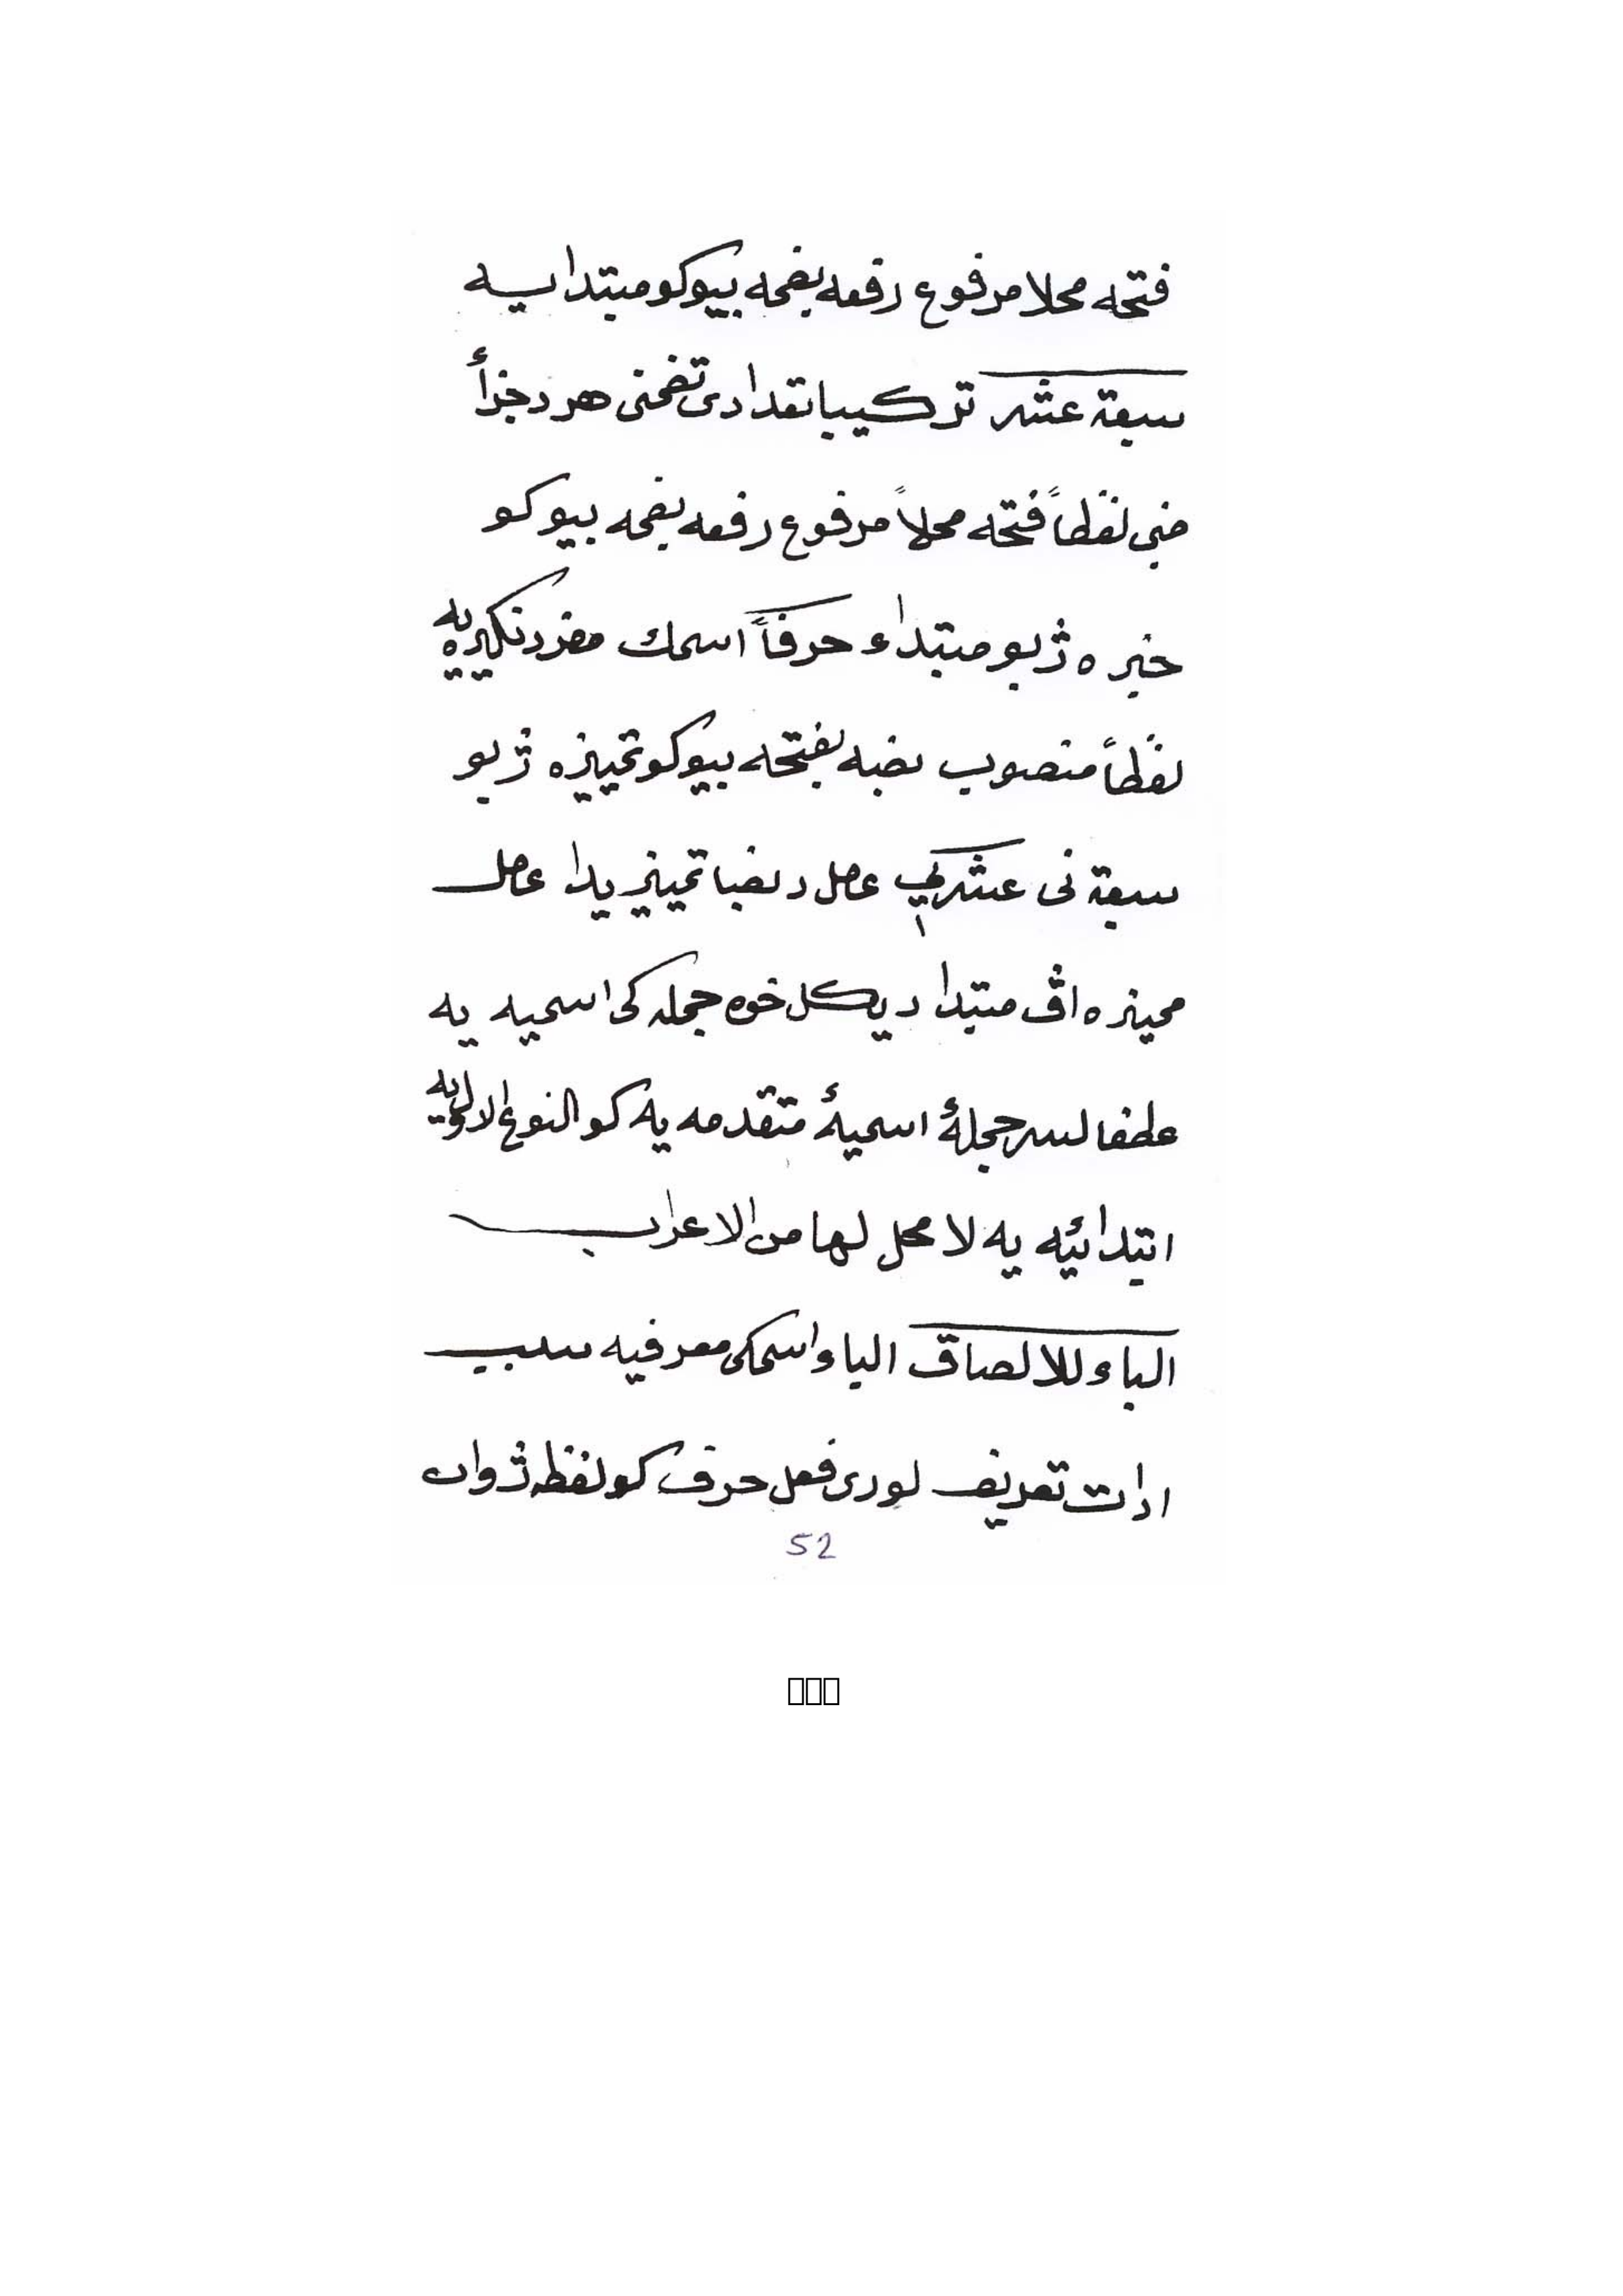 فتحه محلا مرفوع رفعه بضمه بيوكو مبتدايه
سبعة عشر تركيبا تعدادى تضمنى هر دجزأ
مبنى لفظاً فتحه محلاً مرفوع رفعه بضمه بيوكو
خبره ژبو مبتداء حرفاً اسمك مفرد نكيره يه
لفظاً منصوب نصبه بفتحه بيوكو تمييزه ژبو
سبعة نى عشركي عمل د نصبا تمييز يدا عامل
مميزه اڤ مبتدا ديكل خوه جمله كى اسميه يه
عطفا لسر جملهٔ اسميهٔ متقدمه يه كو النوع الاول يه
ابتدائيه يه لا محل لها من الاعراب
الباء للالصاق الباء اسمكى معرفيه سبب
ادات تعريف لورى فعل حرف كو لفظه ژوان
52